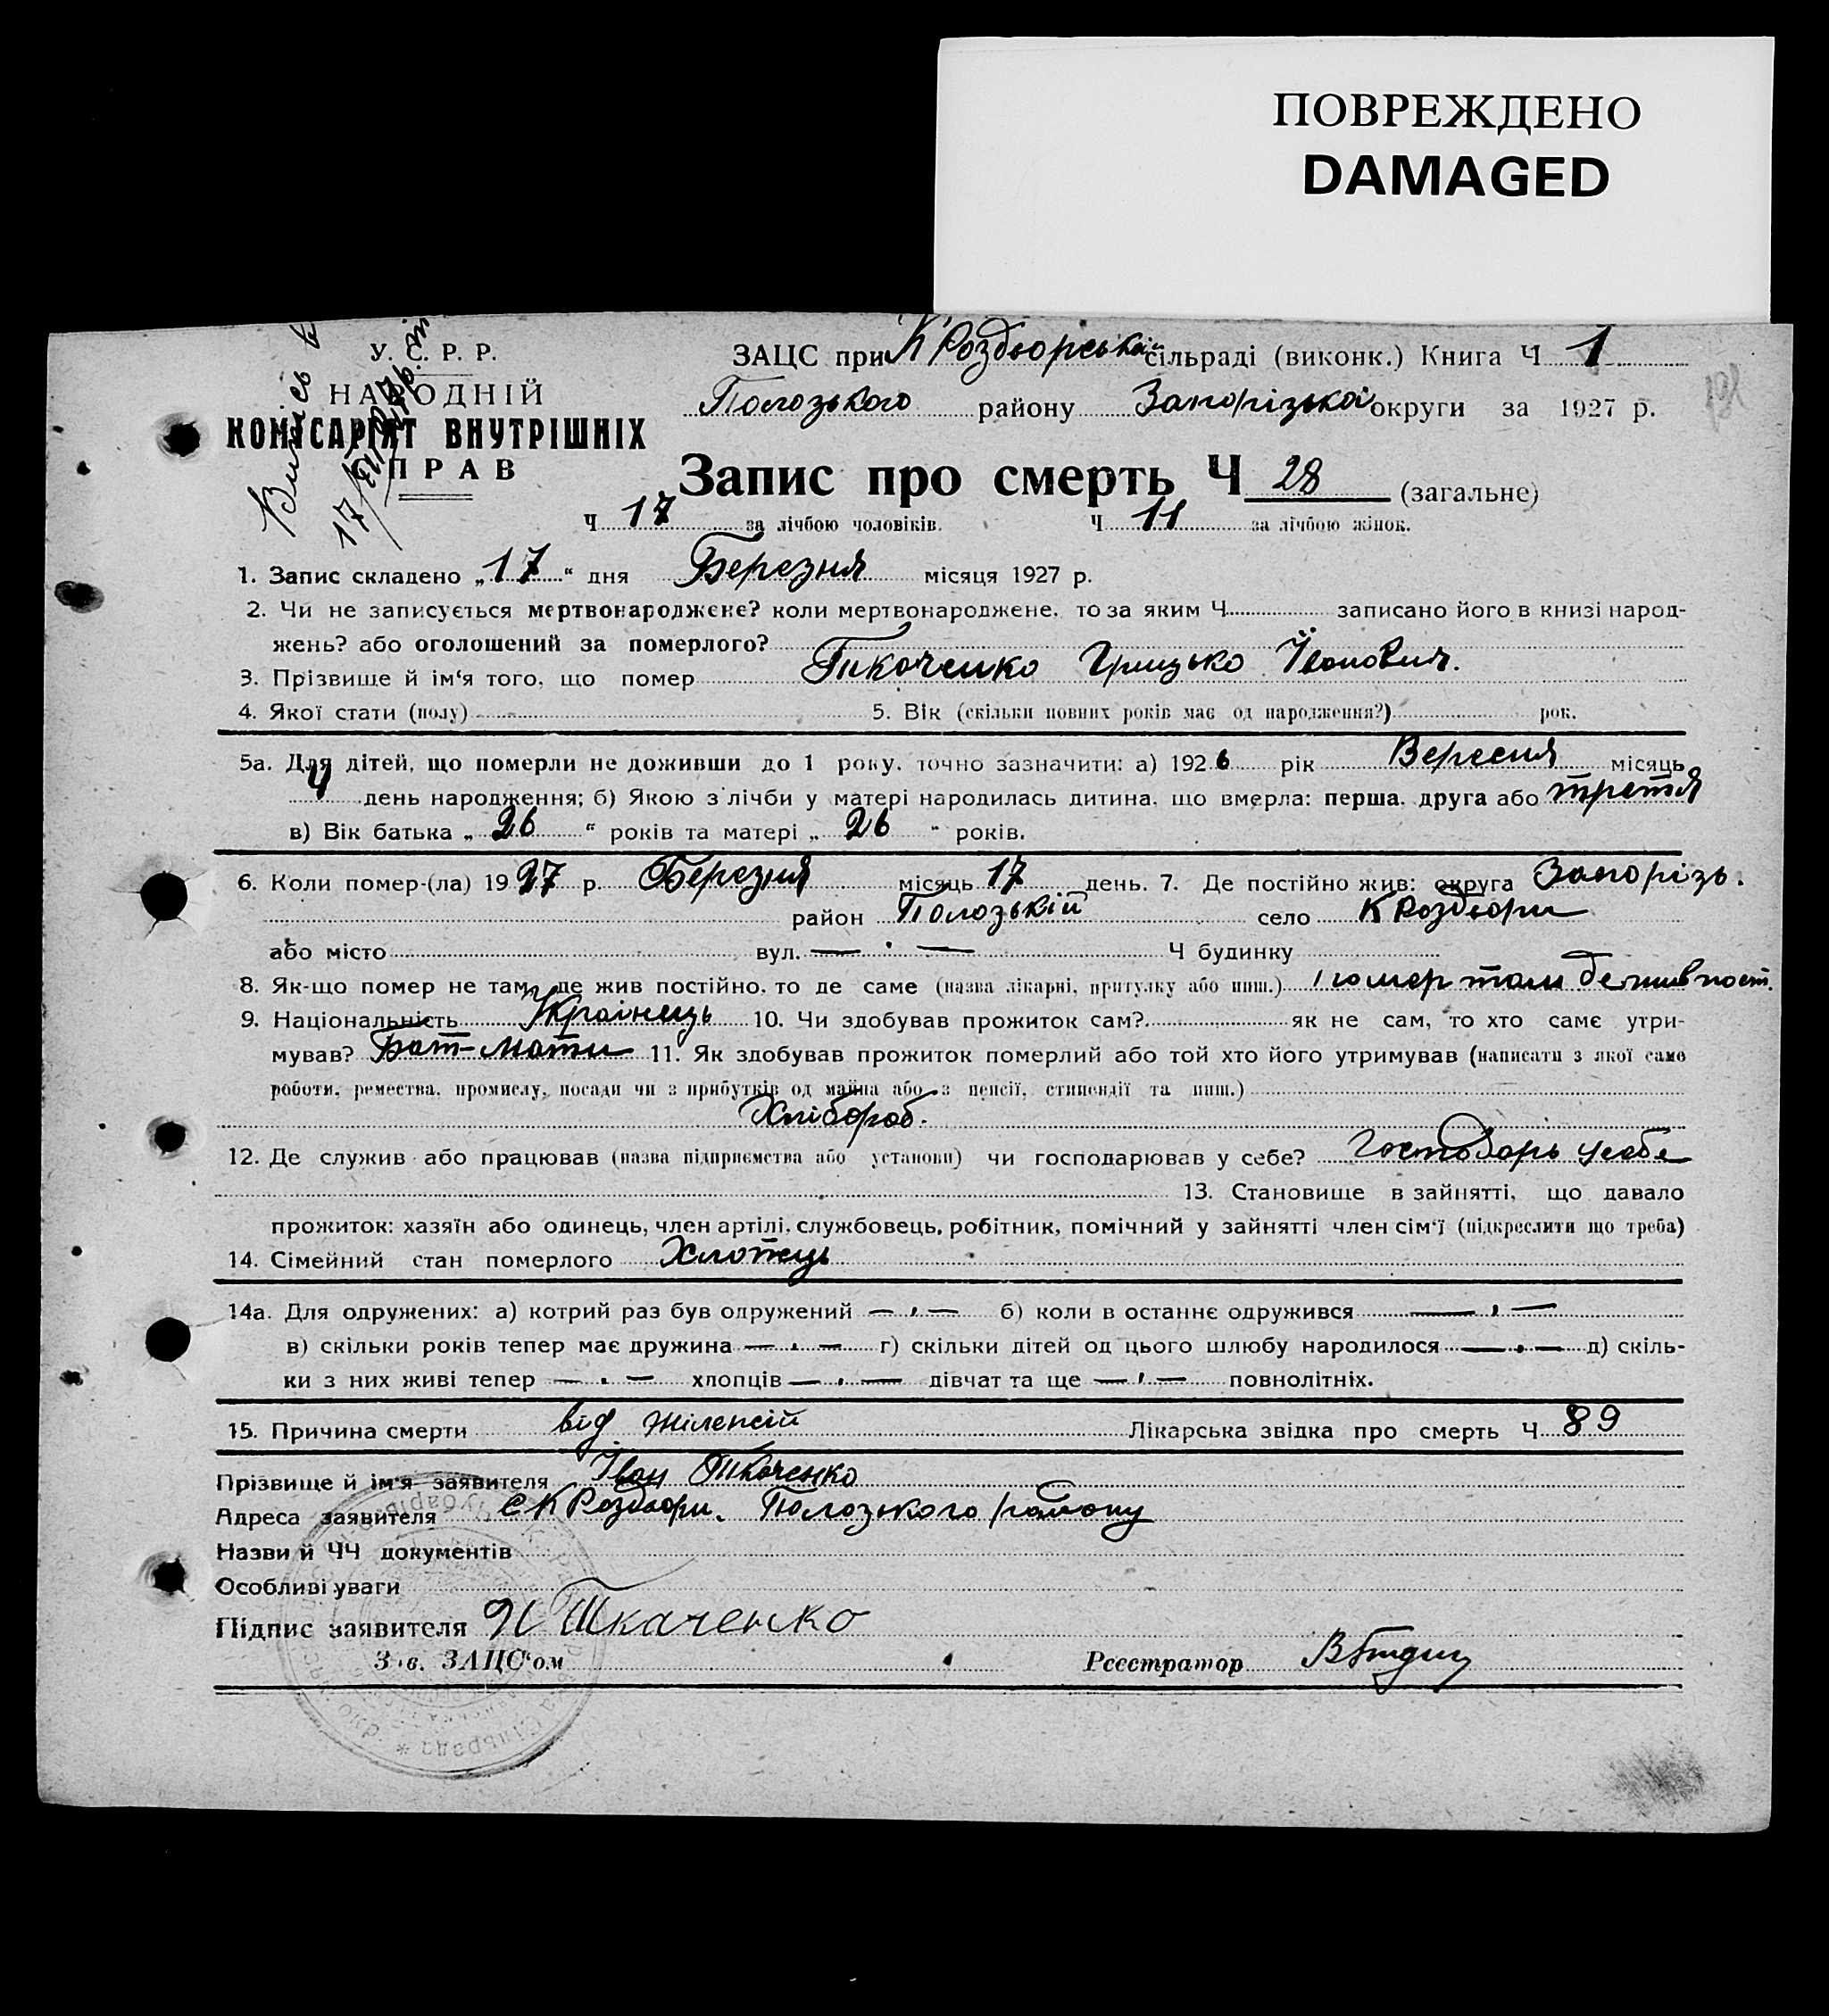 ПОВРЕЖДЕНО
DAMAGED
У. С. Р. Р.
НАРОДНІЙ
КОМІСАРІЯТ ВНУТРІШНІХ
ПРАВ
ЗАЦС при К Роздорській сільраді (виконк.) Книга Ч 1
Пологзького району Запорізької округи за 1927 р.
Запис про смерть Ч 28 (загальне)
Ч 17 за лічбою чоловіків. Ч 11 за лічбою жінок.
1. Запис складено „17“ дня Березня місяця 1927 р.
2. Чи не записується мертвонароджене? коли мертвонароджене, то за яким Ч записано його в книзі народ-
жень? або оголошений за померлого?
3. Прізвище й ім‘я того, що помер Ткаченко Грицько Іванович.
4. Якої стати (полу) 5. Вік (скільки повних років має од народження?) рок.
5а. Для дітей, що померли не доживши до 1 року, точно зазначити: а) 1926 рік Вересня місяць
4 день народження; б) Якою з лічби у матері народилась дитина, що вмерла: перша, друга або третя
в) Вік батька „26“ років та матері „26“ років.
6. Коли помер-(ла) 1927 р. Березня місяць 17 день. 7. Де постійно жив: округа Запорізь.
район Полозькій село К Роздори
або місто вул. — · — Ч будинку
8. Як-що помер не там, де жив постійно, то де саме (назва лікарні, притулку або инш.) помер там де жив пост.
9. Національність Українець 10. Чи здобував прожиток сам? як не сам, то хто саме утри-
мував? Бат-мати 11. Як здобував прожиток померлий або той хто його утримував (написати з якої само
роботи, ремества, промислу, посади чи з прибутків од майна або з пенсії, стипендії та инш.)
Хлібороб.
12. Де служив або працював (назва підприємства або установи) чи господарював у себе? Господарь усебе
13. Становище в зайнятті, що давало
прожиток: хазяїн або одинець, член артілі, службовець, робітник, помічний у зайнятті член сім‘ї (підкреслити що треба)
14. Сімейний стан померлого Хлопець
14а. Для одружених: а) котрий раз був одружений — · — б) коли в останнє одружився — · —
в) скільки років тепер має дружина — · — г) скільки дітей од цього шлюбу народилося — · — д) скіль-
ки з них живі тепер — · — хлопців — · — дівчат та ще — · — повнолітніх.
15. Причина смерти від Лікарська звідка про смерть Ч 89
Прізвище й ім‘я заявителя Іван Ткаченко
Адреса заявителя С К Роздори. Полозького району
Назви й ЧЧ документів
Особливі уваги
Підпис заявителя И Ткаченко
Зав. ЗАЦС‘ом Реєстратор